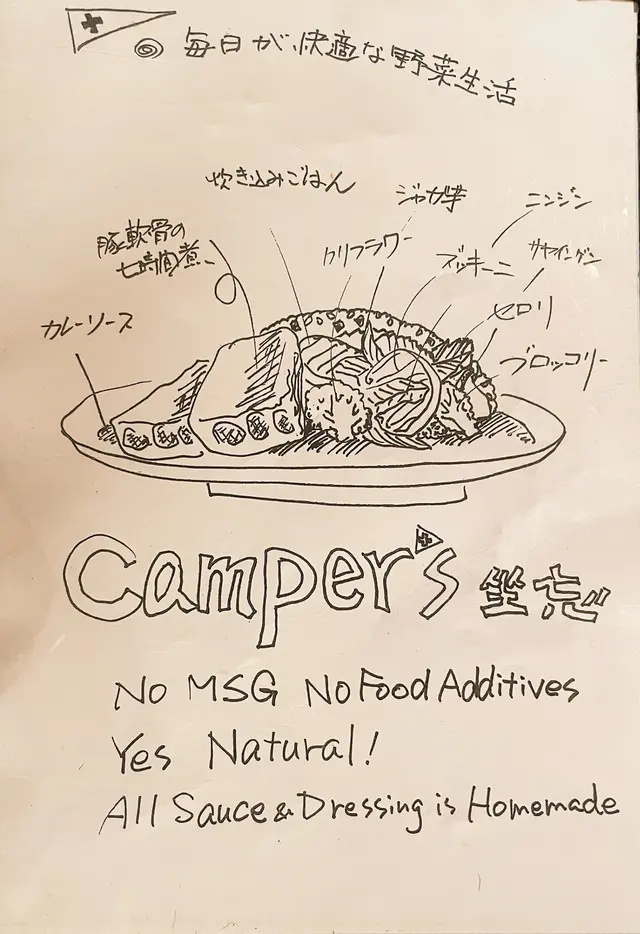 毎日が快適な野菜生活
炊き込みごはん
ジャガ芋
ニンジン
豚軟骨の
七時間煮
カリフラワー
ズッキーニ
サヤインゲン
カレーソース
セロリ
ブロッコリー
Camper's
No MSG No Food Additives
Yes Natural!
All Sauce & Dressing is Homemade